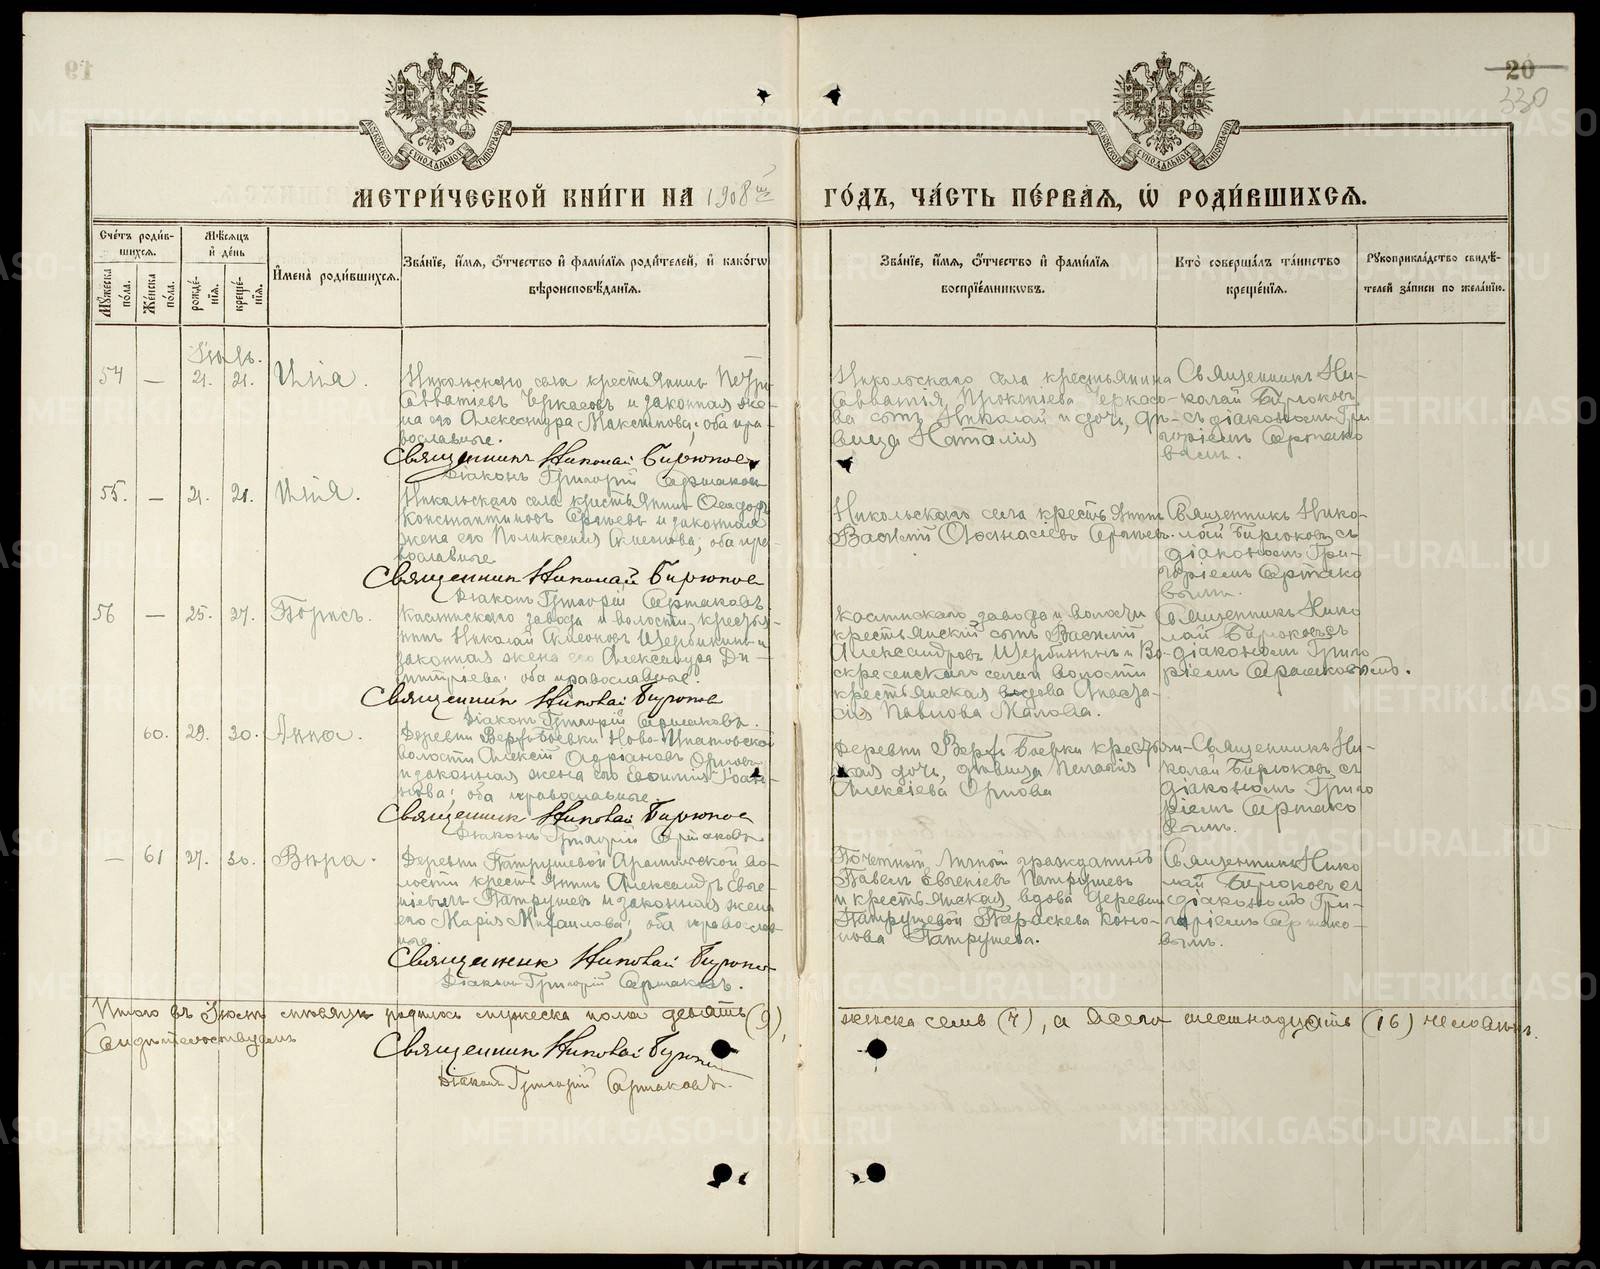 19
20
330
МОСКОВСКОЙ СУНОДАЛЬНОЙ ТИПОГРАФІИ
МОСКОВСКОЙ СУНОДАЛЬНОЙ ТИПОГРАФІИ
МЕТРИ́ЧЕСКОЙ КНИ́ГИ НА 1908й ГО́ДЪ, ЧА́СТЬ ПЕ́РВАЯ, Ѡ РОДИ́ВШИХСЯ.
Сче́тъ роди́вшихся.
Мѣ́сяцъ и де́нь
Му́жеска по́ла.
Же́нска по́ла.
рожде́нїя.
креще́нїя.
И҆мена̀ роди́вшихся.
Зва́нїе, и҆́мя, ѻ҆́тчество и҆ фами́лїя роди́телей, и҆ како́гѡ вѣроисповѣ́данїя.
Зва́нїе, и҆́мя, ѻ҆́тчество и҆ фами́лїя воспрїе́мникѡвъ.
Кто̀ соверша́лъ та́инство креще́нїя.
Рꙋкоприкла́дство свидѣ́телей за́писи по жела́нїю.
Іюль.
54 — 21. 21. Илія.
Никольскаго села крестьянинъ Петръ
Савватіевъ Черкасовъ и законная же-
на его Александра Максимова; оба пра-
вославные.
Священникъ Николай Бирюковъ
Діаконъ Григорій Сартаковъ
Никольскаго села крестьянина
Савватія Прокопіева Черкасо-
ва сынъ Николай и дочь, дѣ-
вица Наталія
Священникъ Ни-
колай Бирюковъ
съ діакономъ Гри
горіемъ Сартако
вымъ.
55. — 21. 21. Илія.
Никольскаго села крестьянинъ Ѳеодоръ
Константиновъ и законная
жена его Поликсенія Симеонова; оба пра-
вославные
Священникъ Николай Бирюковъ
Діаконъ Григорій Сартаковъ.
Никольскаго села крестьянинъ
Василій Аѳанасіевъ
Священникъ Нико-
лай Бирюковъ съ
діакономъ Гри-
горіемъ Сартако
вымъ.
56 — 25. 27. Борисъ.
Каслинскаго завода и волости, крестья-
нинъ Николай Симеоновъ Щербининъ и
законная жена его Александра Ди-
митріева; оба православные.
Священникъ Николай Бирюковъ
Діаконъ Григорій Сартаковъ.
Каслинскаго завода и волости
крестьянскій сынъ Василій
Александровъ Щербининъ и Во-
скресенскаго села и волости
крестьянская вдова Анаста-
сія Павлова Малова.
Священникъ Нико
лай Бирюковъ съ
діакономъ Григо
ріемъ Сартаковымъ.
60. 29. 30. Анна.
Деревни Верхъ-Боевки Ново-Ипатовской
волости Алексій Адріановъ Орловъ
и законная жена его Евфимія Іоан-
нова; оба православные.
Священникъ Николай Бирюковъ
Діаконъ Григорій Сартаковъ
Деревни Верхъ Боевки крестьян-
ская дочь, дѣвица Пелагія
Алексіева Орлова
Священникъ Ни-
колай Бирюковъ съ
діакономъ Григо
ріемъ Сартако
вымъ.
— 61 27. 30. Вѣра.
Деревни Патрушевой Арамильской во-
лости крестьянинъ Александръ Евге-
ніевъ Патрушевъ и законная жена
его Марія Михаилова; оба православ-
ные.
Священникъ Николай Бирюков
Діаконъ Григорій Сартаковъ.
Почетный личный гражданинъ
Павелъ Евгеніевъ Патрушевъ
и крестьянская вдова деревни
Патрушевой Параскева Коно-
нова Патрушева.
Священникъ Нико
лай Бирюковъ съ
діакономъ Гри-
горіемъ Сартако-
вымъ.
Итого въ Іюлѣ мѣсяцѣ родилось мужеска пола девять (9), женска семь (7), а всего шестнадцать (16) человѣкъ.
Свидѣтельствуемъ
Священникъ Николай Бирюков
Діаконъ Григорій Сартаковъ.
METRIKI.GASO-URAL.RU